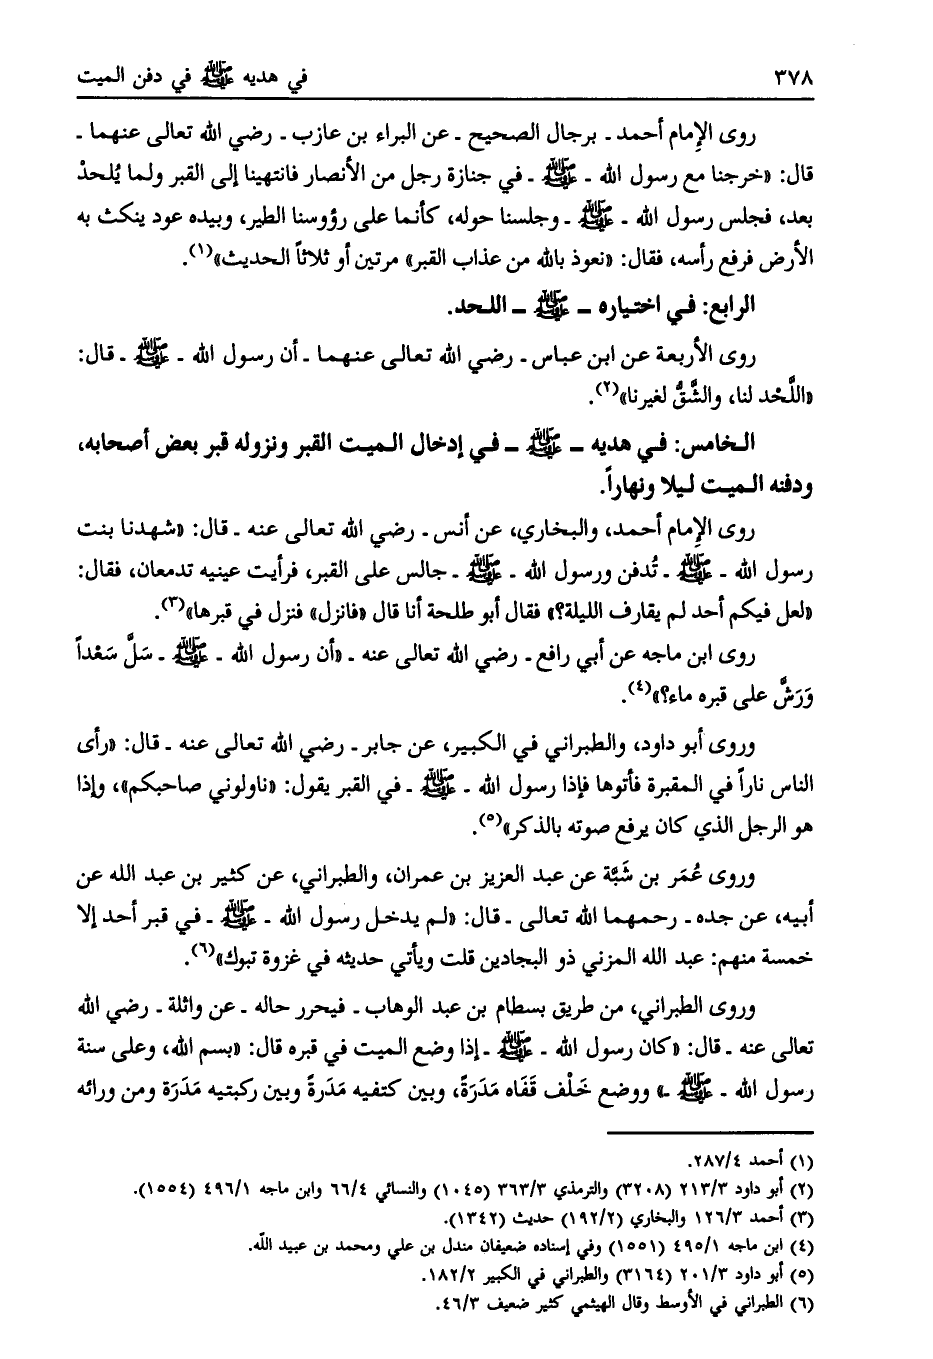 ٣٧٨ في هديه ﷺ في دفن الميت
روى الإمام أحمد ـ برجال الصحيح ـ عن البراء بن عازب ـ رضي الله تعالى عنهما ـ
قال: «خرجنا مع رسول الله ـ ﷺ ـ في جنازة رجل من الأنصار فانتهينا إلى القبر ولما يُلحدْ
بعد، فجلس رسول الله ـ ﷺ ـ وجلسنا حوله، كأنما على رؤوسنا الطير، وبيده عود ينكث به
الأرض فرفع رأسه، فقال: «نعوذ بالله من عذاب القبر» مرتين أو ثلاثاً الحديث»(١).
الرابع: في اختياره ـ ﷺ ـ اللحد.
روى الأربعة عن ابن عباس ـ رضي الله تعالى عنهما ـ أن رسول الله ـ ﷺ ـ قال:
«اللَّحْد لنا، والشَّقُّ لغيرنا»(٢).
الخامس: في هديه ـ ﷺ ـ في إدخال الميت القبر ونزوله قبر بعض أصحابه،
ودفنه الميت ليلا ونهاراً.
روى الإمام أحمد، والبخاري، عن أنس ـ رضي الله تعالى عنه ـ قال: «شهدنا بنت
رسول الله ـ ﷺ ـ تُدفن ورسول الله ـ ﷺ ـ جالس على القبر، فرأيت عينيه تدمعان، فقال:
«لعل فيكم أحد لم يقارف الليلة؟» فقال أبو طلحة أنا قال «فانزل» فنزل في قبرها»(٣).
روى ابن ماجه عن أبي رافع ـ رضي الله تعالى عنه ـ «أن رسول الله ـ ﷺ ـ سَلَّ سَعْداً
وَرَشَّ على قبره ماء؟»(٤).
وروى أبو داود، والطبراني في الكبير، عن جابر ـ رضي الله تعالى عنه ـ قال: «رأى
الناس ناراً في المقبرة فأتوها فإذا رسول الله ـ ﷺ ـ في القبر يقول: «ناولوني صاحبكم»، وإذا
هو الرجل الذي كان يرفع صوته بالذكر»(٥).
وروى عُمَر بن شَبَّة عن عبد العزيز بن عمران، والطبراني، عن كثير بن عبد الله عن
أبيه، عن جده ـ رحمهما الله تعالى ـ قال: «لم يدخل رسول الله ـ ﷺ ـ في قبر أحد إلا
خمسة منهم: عبد الله المزني ذو البجادين قلت ويأتي حديثه في غزوة تبوك»(٦).
وروى الطبراني، من طريق بسطام بن عبد الوهاب ـ فيحرر حاله ـ عن واثلة ـ رضي الله
تعالى عنه ـ قال: «كان رسول الله ـ ﷺ ـ إذا وضع الميت في قبره قال: «بسم الله، وعلى سنة
رسول الله ـ ﷺ ـ» ووضع خَلْف قَفَاه مَدَرَةً، وبين كتفيه مَدَرةً وبين ركبتيه مَدَرَة ومن ورائه
(١) أحمد ٢٨٧/٤.
(٢) أبو داود ٢١٣/٣ (٣٢٠٨) والترمذي ٣٦٣/٣ (١٠٤٥) والنسائي ٦٦/٤ وابن ماجه ٤٩٦/١ (١٥٥٤).
(٣) أحمد ١٢٦/٣ والبخاري (١٩٢/٢) حديث (١٣٤٢).
(٤) ابن ماجه ٤٩٥/١ (١٥٥١) وفي إسناده ضعيفان مندل بن علي ومحمد بن عبيد اللّه.
(٥) أبو داود ٢٠١/٣ (٣١٦٤) والطبراني في الكبير ١٨٢/٢.
(٦) الطبراني في الأوسط وقال الهيثمي كثير ضعيف ٤٦/٣.